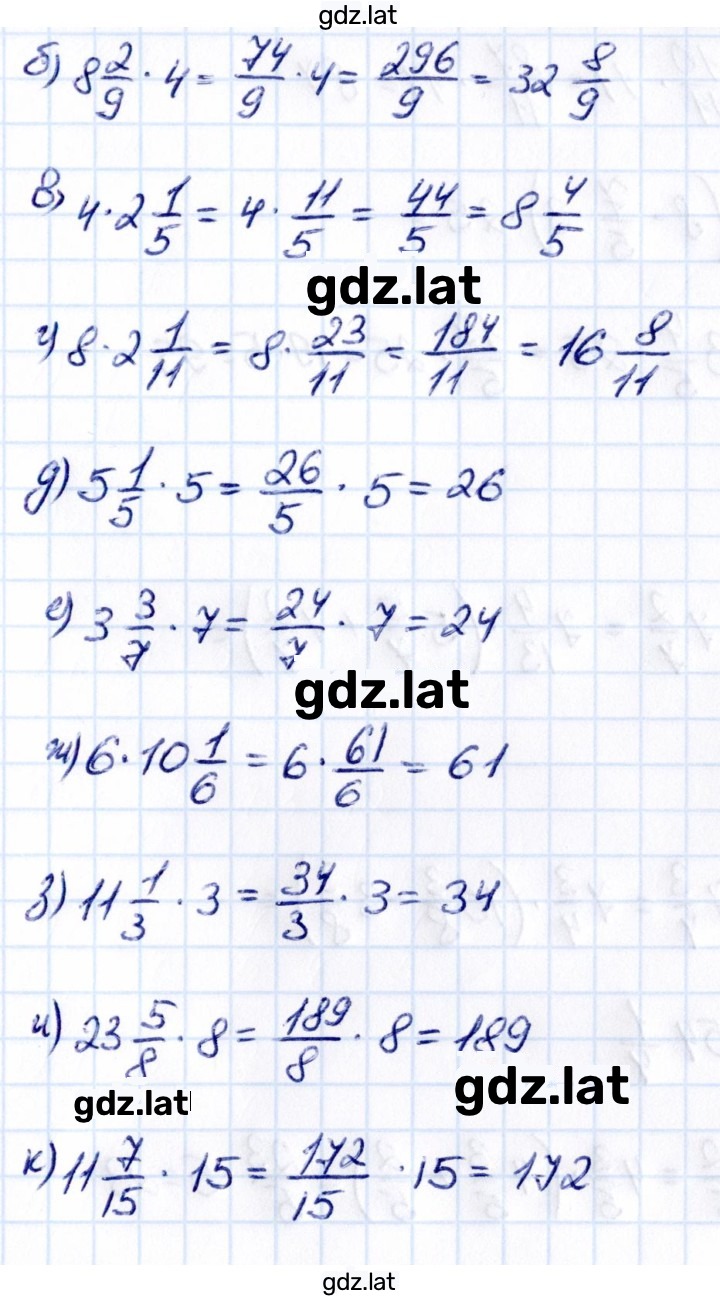 gdz.lat
б) 8 2/9 · 4 = 74/9 · 4 = 296/9 = 32 8/9
в) 4 · 2 1/5 = 4 · 11/5 = 44/5 = 8 4/5
gdz.lat
г) 8 · 2 1/11 = 8 · 23/11 = 184/11 = 16 8/11
д) 5 1/5 · 5 = 26/5 · 5 = 26
е) 3 3/7 · 7 = 24/7 · 7 = 24
gdz.lat
ж) 6 · 10 1/6 = 6 · 61/6 = 61
з) 11 1/3 · 3 = 34/3 · 3 = 34
и) 23 5/8 · 8 = 189/8 · 8 = 189
gdz.lat
gdz.lat
к) 11 7/15 · 15 = 172/15 · 15 = 172
gdz.lat